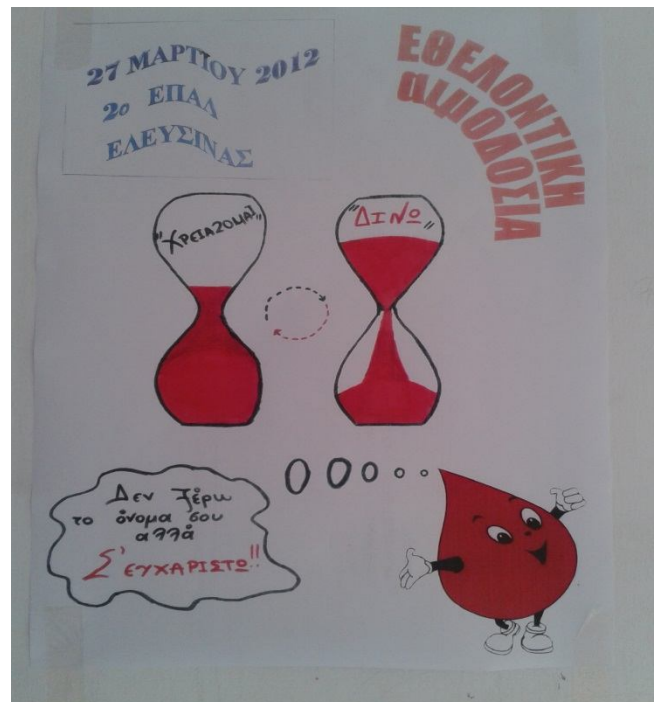 27 ΜΑΡΤΙΟΥ 2012
2ο ΕΠΑΛ
ΕΛΕΥΣΙΝΑΣ
ΕΘΕΛΟΝΤΙΚΗ
αιμοΔΟΣΙΑ
"ΧΡΕΙΑΖΟΜΑΙ"
"ΔΙΝΩ"
Δεν ξέρω
το όνομα σου
αλλά
Σ' ΕΥΧΑΡΙΣΤΩ!!